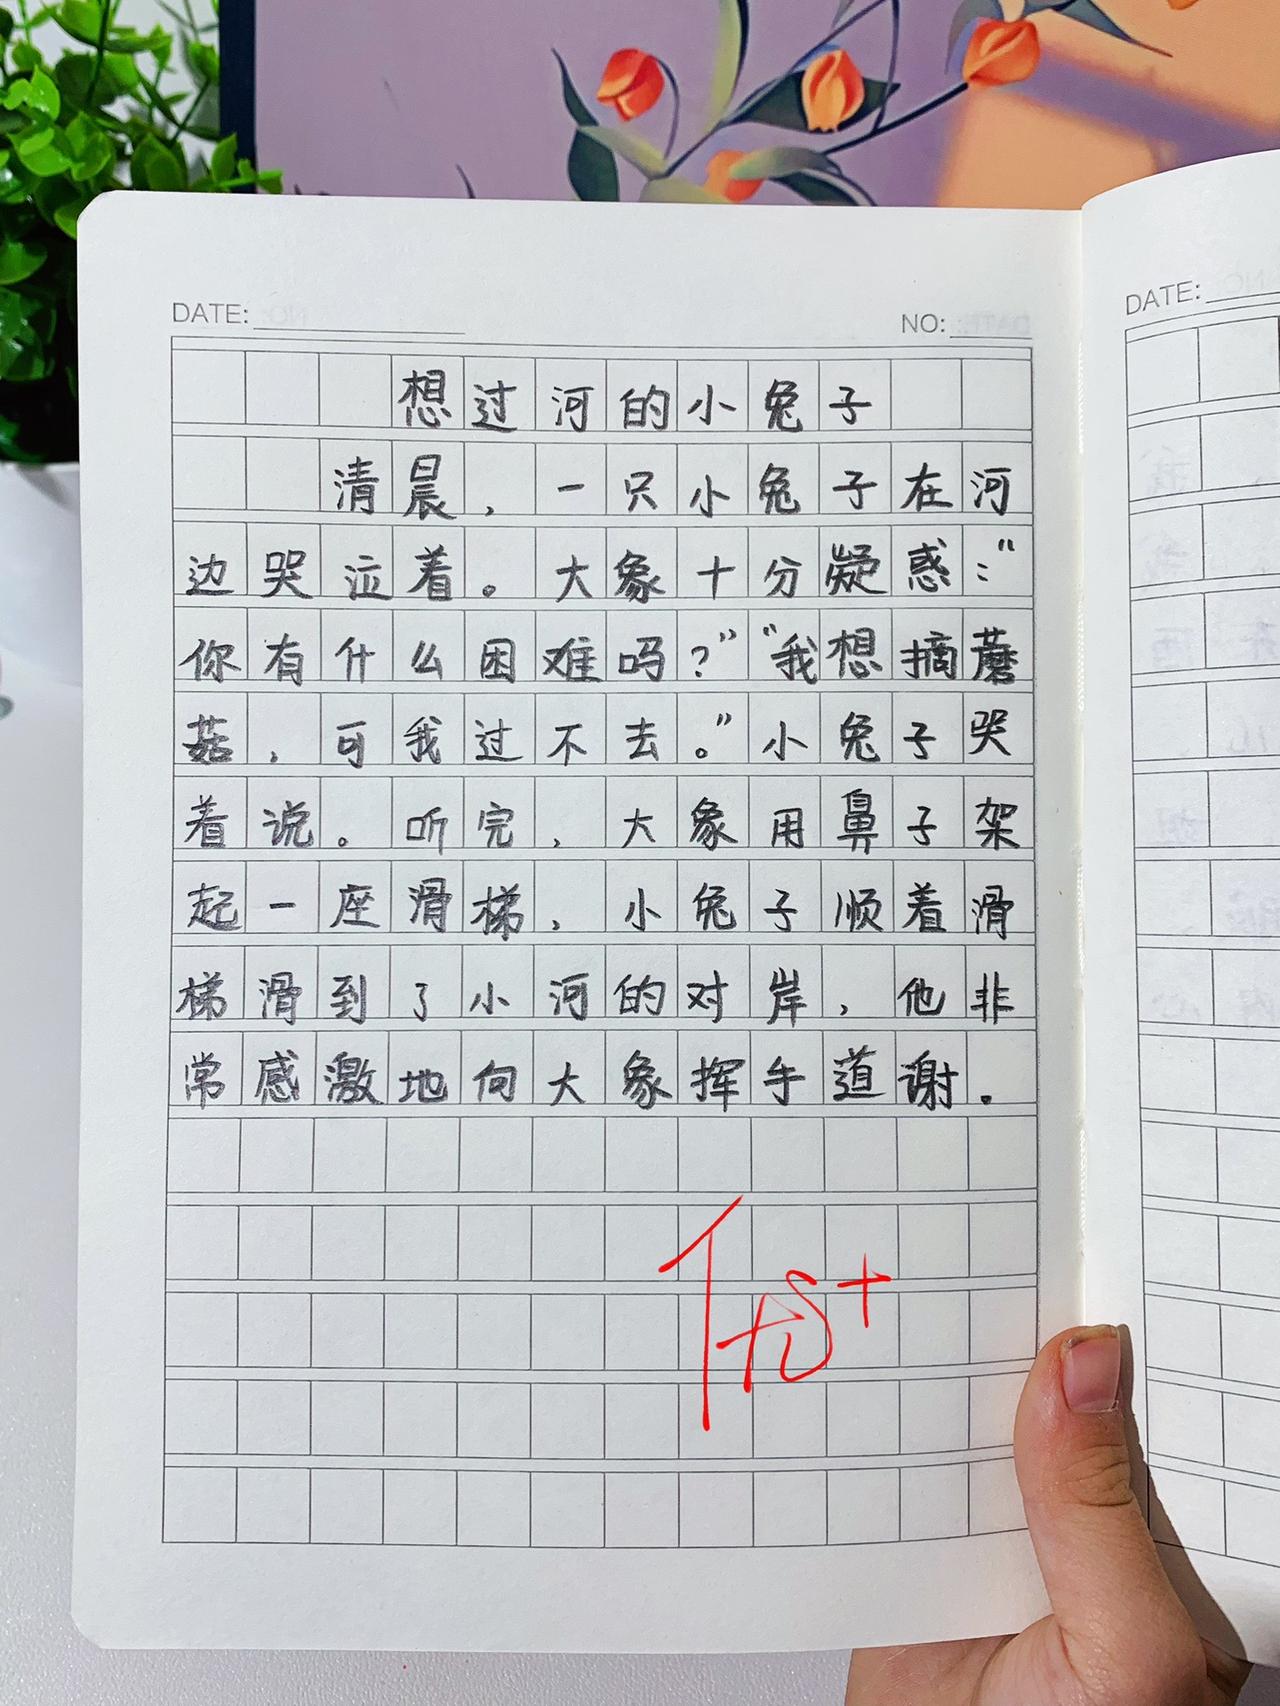 DATE:
NO:
DATE:
想过河的小兔子
清晨，一只小兔子在河
边哭泣着。大象十分疑惑：“
你有什么困难吗？”“我想摘蘑
菇，可我过不去。”小兔子哭
着说。听完，大象用鼻子架
起一座滑梯，小兔子顺着滑
梯滑到了小河的对岸，他非
常感激地向大象挥手道谢。